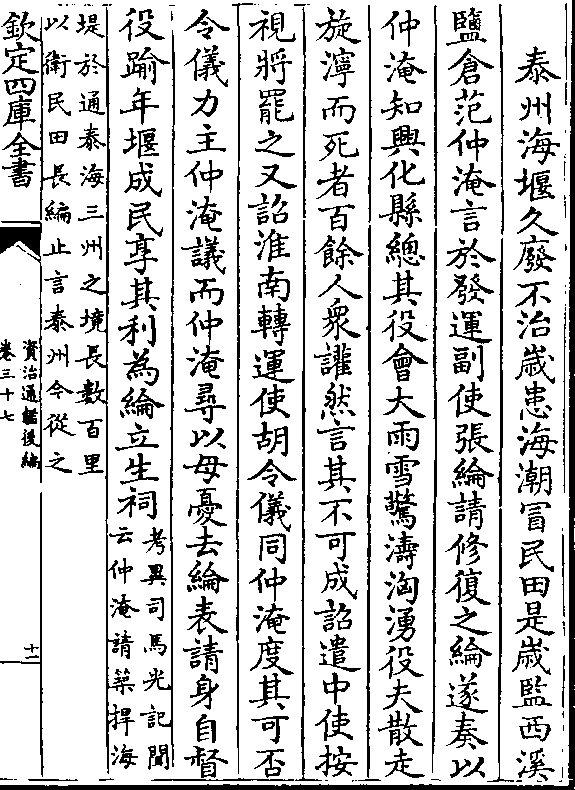 泰州海堰久廢不治歲患海潮冒民田是歲監西溪
鹽倉范仲淹言於發運副使張綸請修復之綸遂奏以
仲淹知興化縣總其役會大雨雪驚濤洶湧役夫散走
旋濘而死者百餘人衆讙然言其不可成詔遣中使按
視將罷之又詔淮南轉運使胡令儀同仲淹度其可否
令儀力主仲淹議而仲淹尋以母憂去綸表請身自督
役踰年堰成民享其利為綸立生祠
考異司馬光記聞
云仲淹請築捍海
堤於通泰海三州之境長數百里
以衛民田長編止言泰州今從之
欽定四庫全書
資治通鑑後編
卷三十七
十一